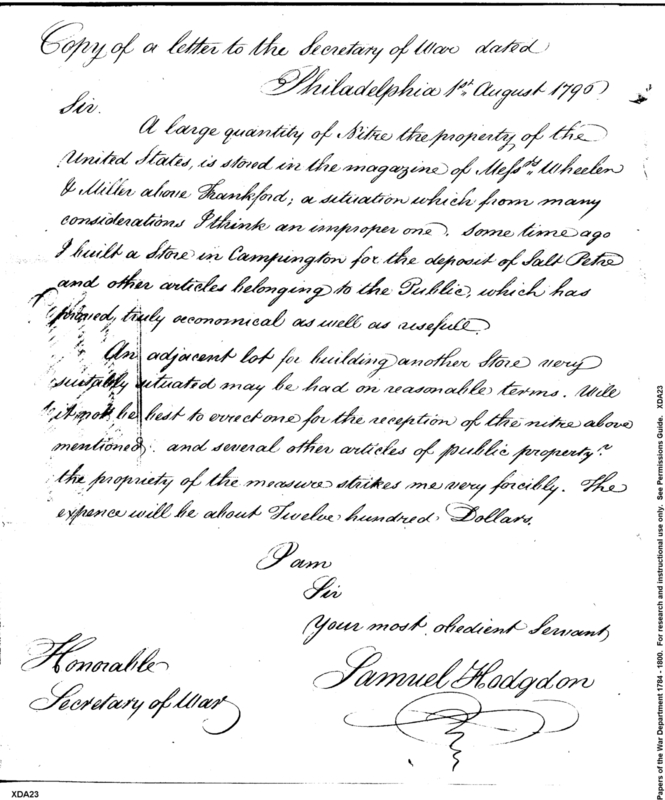 Copy of a letter to the Secretary of War dated
Philadelphia 1st. August 1796
Sir.
A large quantity of Nitre the property of the
United States, is stored in the magazine of Messrs. Wheelen
& Miller above Frankford; a situation which from many
considerations I think an improper one. Some time ago
I built a Store in Campington for the deposit of Salt Petre
and other articles belonging to the Public, which has
proved, truly oeconomical as well as usefull.
An adjacent lot for building another Store very
suitably situated may be had on reasonable terms. Will
it not be best to errect one for the reception of the nitre above
mentioned, and several other articles of public property?
the propriety of the measure strikes me very forcibly. The
expence will be about Twelve hundred Dollars.
I am
Sir
Your most obedient Servant,
Samuel Hodgdon
Honorable
Secretary of War
XDA23
Papers of the War Department 1784 - 1800. For research and instructional use only. See Permissions Guide. XDA23